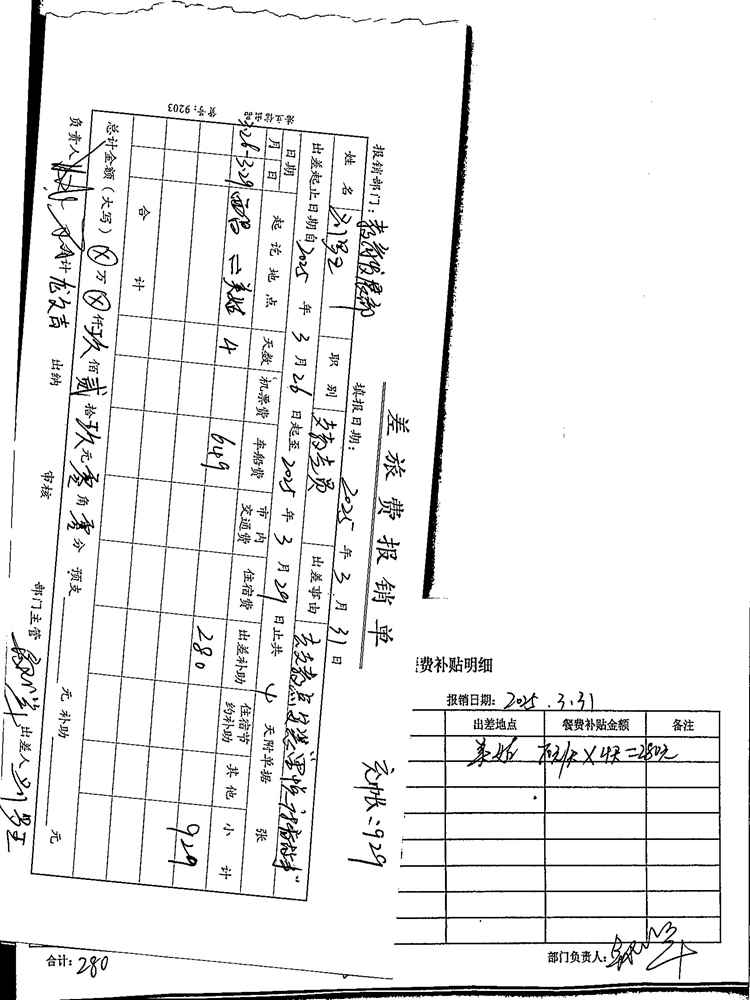 差旅费报销单
报销部门：教育发展部 填报日期：2025年3月31日
姓名 职别 支教专员 出差事由
出差起止日期自2025年3月26日起至2025年3月29日止共 4 天附单据 张
日期 月 日 起讫地点 天数 机票费 车船费 市内交通费 住宿费 出差补助 住宿节约补助 其他 小计
3.26-3.29 西昌 美姑 4 649 280 929
合计
总计金额（大写）ⓧ万ⓧ仟玖佰贰拾玖元零角零分 预支 元 补助 元
负责人 会计 出纳 审核 部门主管 出差人
货号：9203
充帐：929
费补贴明细
报销日期：2025.3.31
出差地点 餐费补贴金额 备注
美姑 70元/天×4天=280元
部门负责人：
合计：280